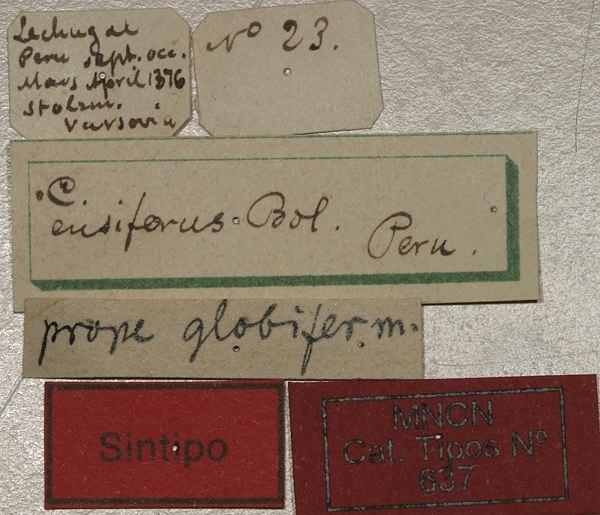 Lechugal
Peru sept. occ.
Mars April 1876
Stolzm.
Varsovia
No 23.
C
ensiferus Bol.
Peru.
prope globifer m.
Sintipo
MNCN
Cat. Tipos Nº
637